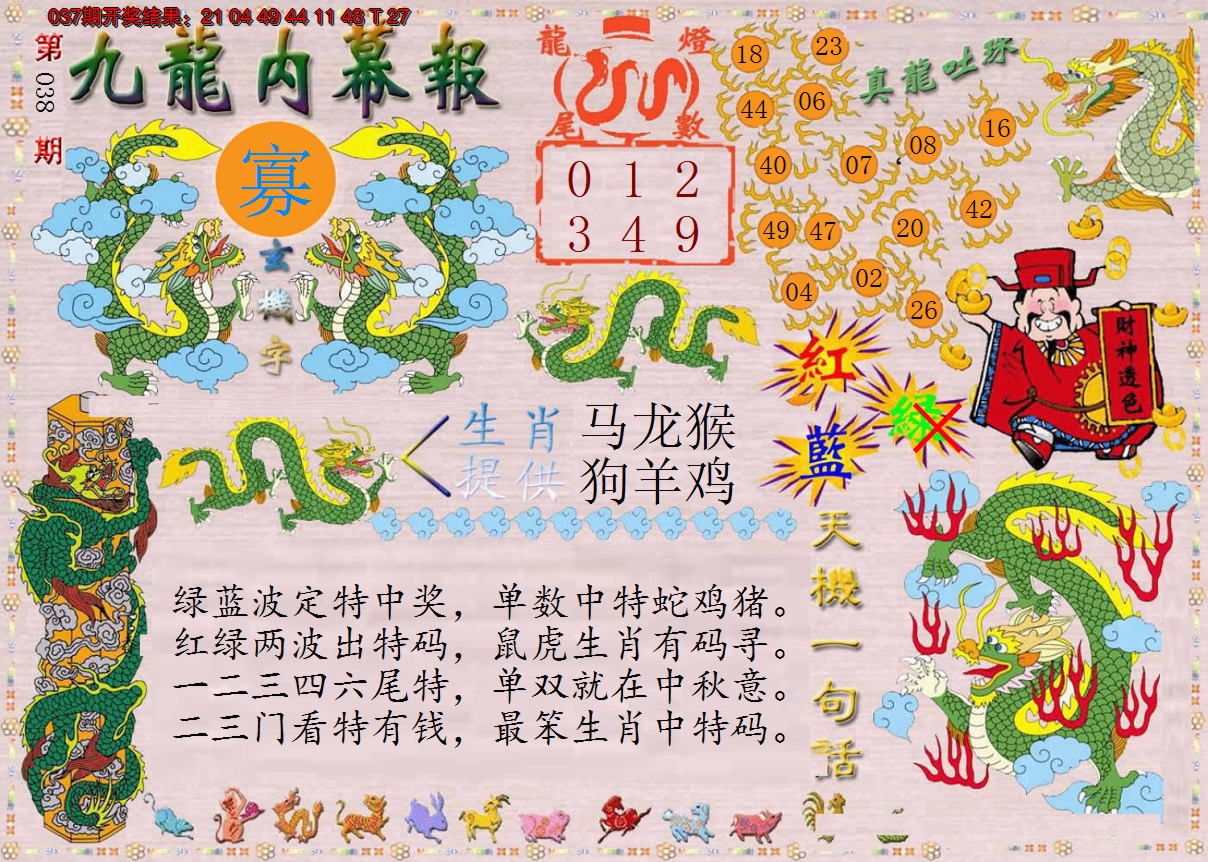 037期开奖结果：21 04 49 44 11 48 T 27
第038期
九龍内幕報
寡
玄機字
龍燈尾數
0 1 2
3 4 9
真龍吐珠
18 23
44 06
40 07 08 16
49 47 20 42
04 02 26
財神透色
紅
綠
藍
生肖提供
马龙猴
狗羊鸡
天機一句話
绿蓝波定特中奖，单数中特蛇鸡猪。
红绿两波出特码，鼠虎生肖有码寻。
一二三四六尾特，单双就在中秋意。
二三门看特有钱，最笨生肖中特码。